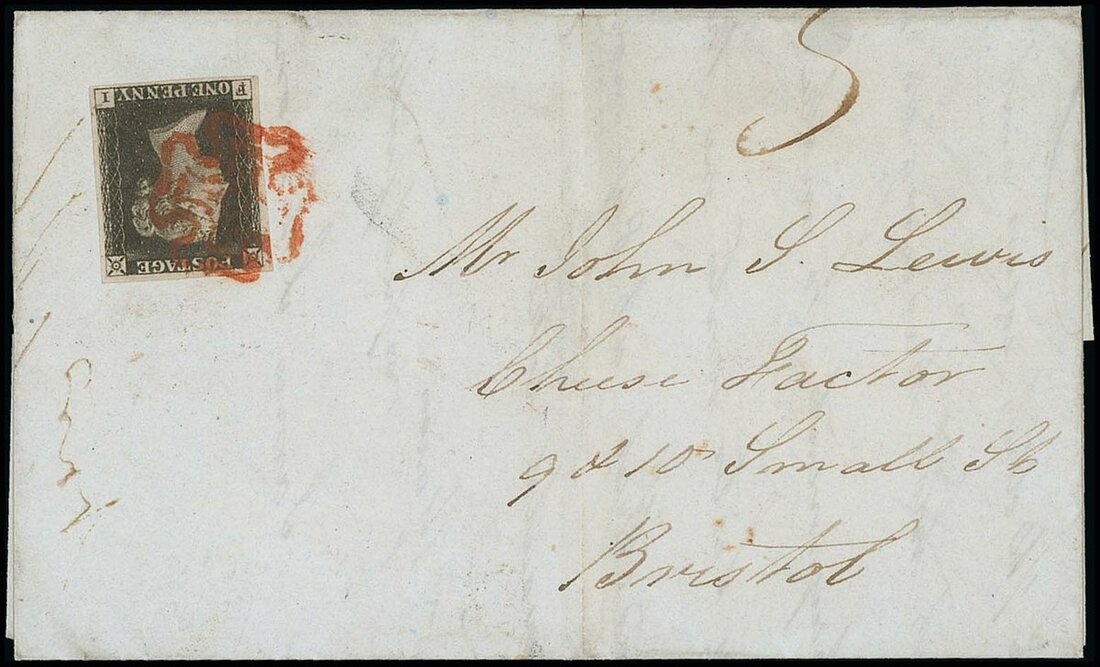 POSTAGE
F ONE PENNY I
5
Mr John S. Lewis
Cheese Factor
9 & 10 Small St
Bristol